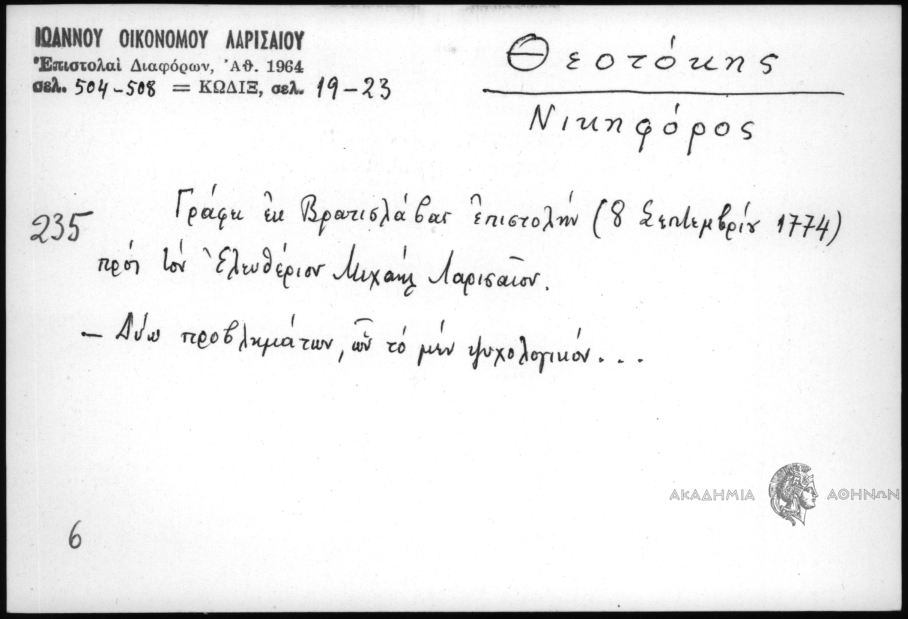 ΙΩΑΝΝΟΥ ΟΙΚΟΝΟΜΟΥ ΛΑΡΙΣΑΙΟΥ
Ἐπιστολαὶ Διαφόρων, Ἀθ. 1964
σελ. 504-508 = ΚΩΔΙΞ, σελ. 19-23
Θεοτόκης
Νικηφόρος
235
Γράφει ἐκ Βρατισλάβας ἐπιστολήν (8 Σεπτεμβρίου 1774)
πρός τόν Ἐλευθέριον Μιχαήλ Λαρισαῖον.
— Δύο προβλημάτων, ὧν τό μέν ψυχολογικόν...
ΑΚΑΔΗΜΙΑ ΑΘΗΝΩΝ
6